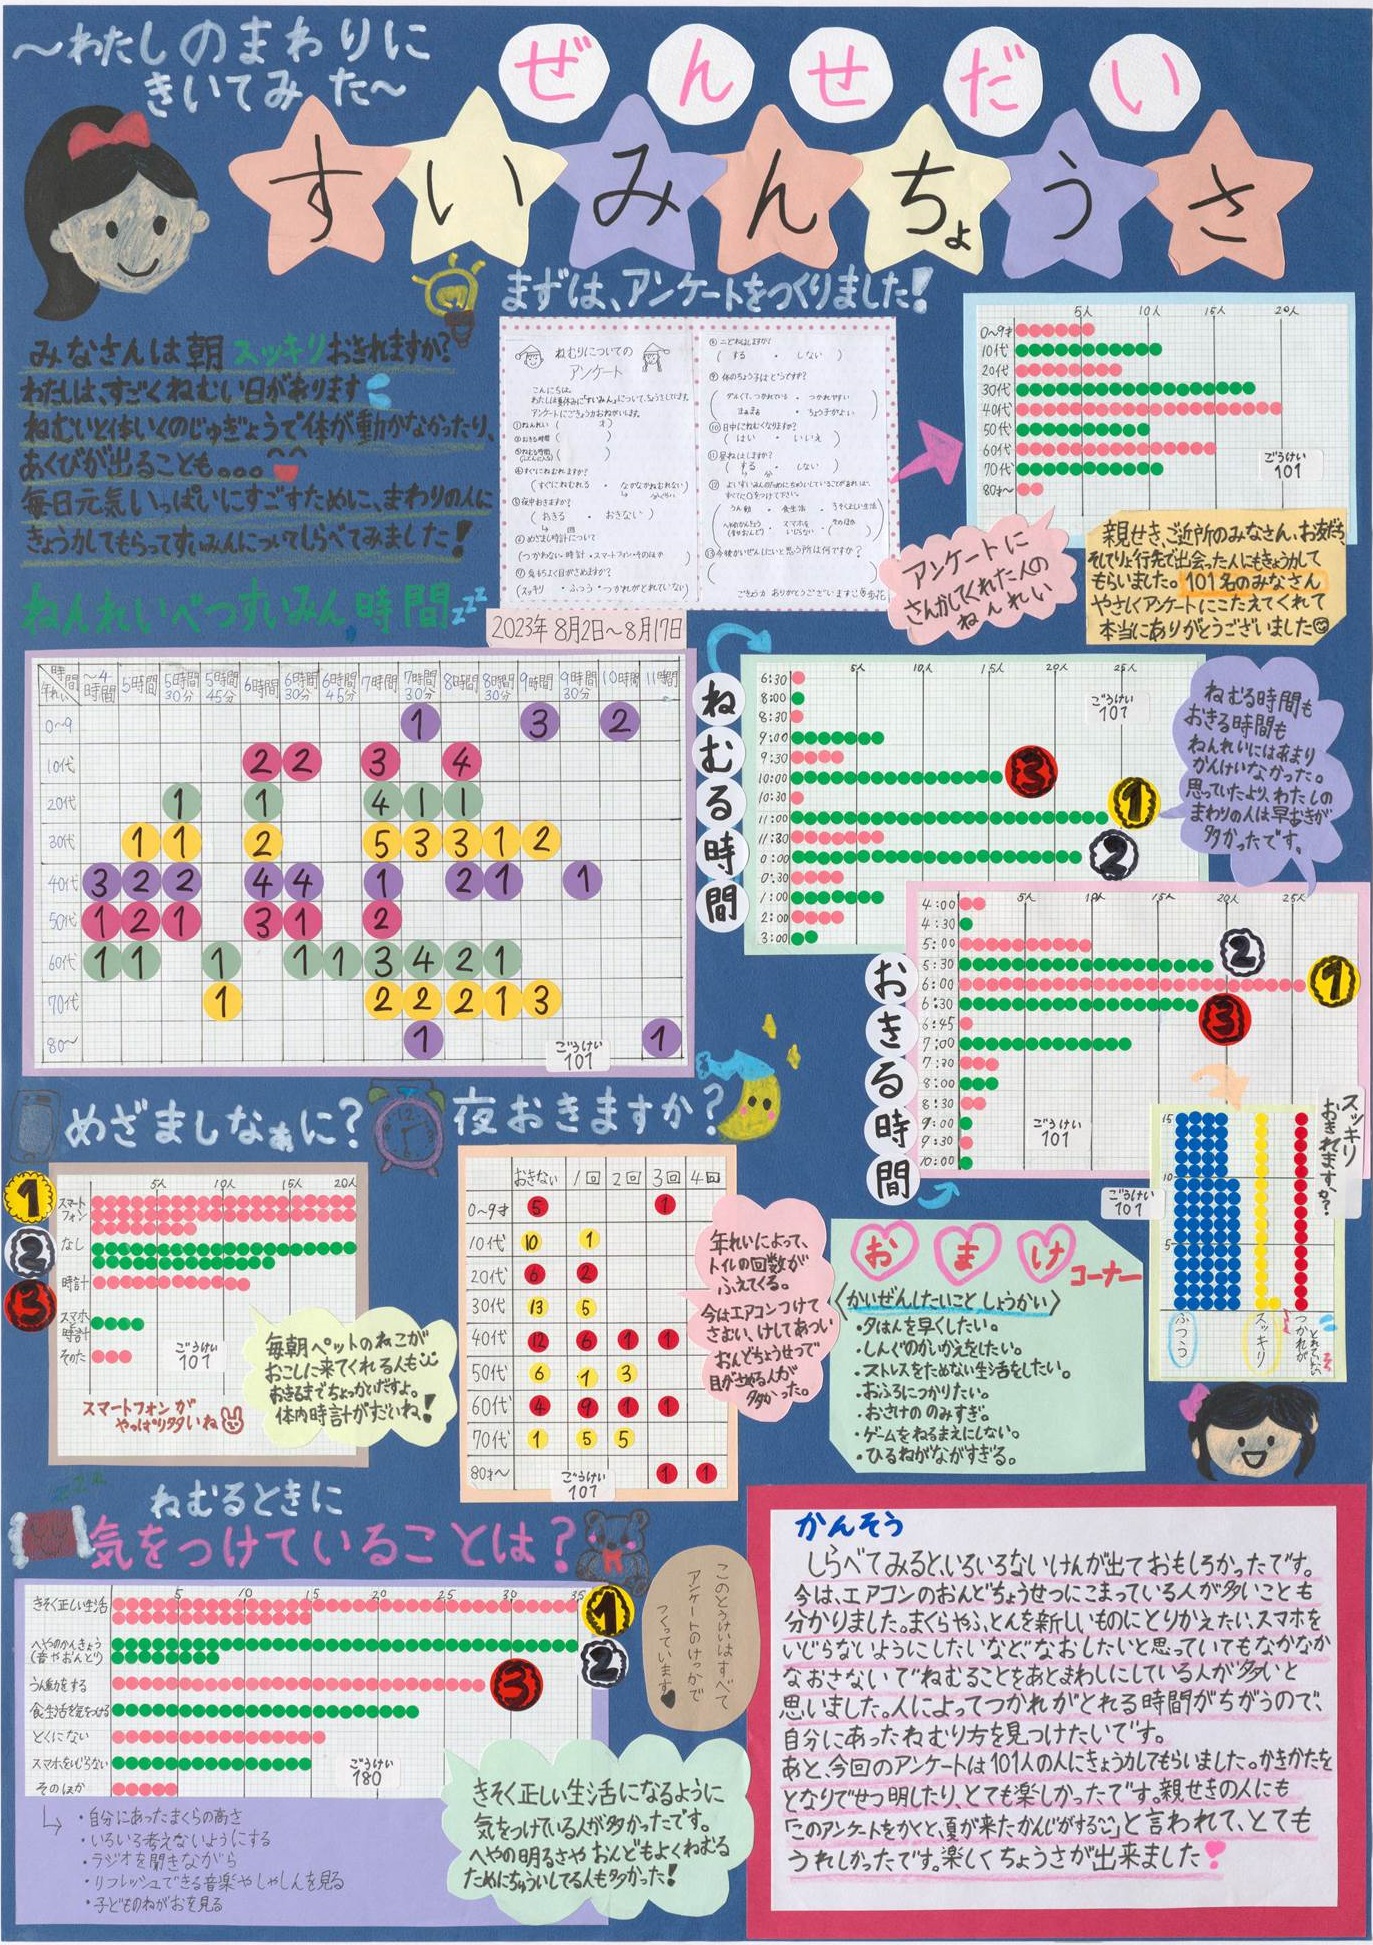 ～わたしのまわりに
きいてみた～
ぜんせだい
すいみんちょうさ
みなさんは朝スッキリおきれますか?
わたしは、すごくねむい日があります
ねむいと体いくのじゅぎょうで体が動かなかったり、
あくびが出ることも。。。
毎日元気いっぱいにすごすために、まわりの人に
きょう力してもらってすいみんについてしらべてみました!
まずは、アンケートをつくりました!
ねむりについての
アンケート
こんにちは。
わたしは夏休みに「すいみん」について、ちょうさしています。
アンケートにごきょう力おねがいします。
①ねんれい ( オ)
②おきる時間 ( )
③ねむる時間 ( )
④すぐにねむれますか?
(すぐにねむれる ・ なかなかねむれない)
⑤夜中おきますか?
(おきる ・ おきない)
回
⑥めざまし時計について
(つかわない・時計・スマートフォン・そのほか )
⑦気もちよく目がさめますか?
(スッキリ ・ふつう・つかれがとれていない)
⑧二どねはしますか?
(する ・ しない )
⑨体のちょう子はどうですか?
ダルくて、つかれている ・ つかれやすい
まぁまぁ ・ ちょう子がよい
⑩日中にねむくなりますか?
(はい ・ いいえ )
⑪昼ねはしますか?
(する ・ しない )
分
うん動 ・ 食生活 ・ きそく正しい生活
⑬今後かいぜんしたいと思う所は何ですか?
( )
ごきょう力ありがとうございます
2023年 8月2日～8月17日
5人 10人 15人 20人
0～9才
10代
20代
30代
40代
50代
60代
70代
80才～
ごうけい
101
アンケートに
さんかしてくれた人の
ねんれい
親せき、ご近所のみなさん、お友だち
そしてりょ行先で出会った人にもきょう力して
もらいました。101名のみなさん
やさしくアンケートにこたえてくれて
本当にありがとうございました
ねんれいべつすいみん時間zzz
時間 ねんれい ～4時間 5時間 5時間30分 5時間45分 6時間 6時間30分 6時間45分 7時間 7時間30分 8時間 8時間30分 9時間 9時間30分 10時間 11時間
0～9 1 3 2
10代 2 2 3 4
20代 1 1 4 1 1
30代 1 1 2 5 3 3 1 2
40代 3 2 2 4 4 1 2 1 1
50代 1 2 1 3 1 2
60代 1 1 1 1 1 3 4 2 1
70代 1 2 2 2 1 3
80～ 1 1
ごうけい
101
ねむる時間
5人 10人 15人 20人 25人
6:30
8:00
8:30
9:00
9:30
10:00 3
10:30
11:00 1
11:30
0:00 2
0:30
1:00
2:00
3:00
ごうけい
101
ねむる時間も
おきる時間も
ねんれいにはあまり
かんけいなかった。
思っていたより、わたしの
まわりの人は早おきが
多かったです。
おきる時間
5人 10人 15人 20人 25人
4:00
4:30
5:00
5:30 2
6:00 1
6:30 3
6:45
7:00
7:30
8:00
8:30
9:00
9:30
10:00
ごうけい
101
スッキリ
おきれますか?
15
10
5
ふつう
スッキリ
つかれが
とれていない
ごうけい
101
めざましなぁに?
5人 10人 15人 20人
1 スマートフォン
2 なし
3 時計
スマホと時計
そのた
ごうけい
101
スマートフォンが
やっぱり多いね
毎朝ペットのねこが
おこしに来てくれる人も
おきるまでちょっかいだすよ。
体内時計がすごいね!
夜おきますか?
おきない 1回 2回 3回 4回
0～9才 5 1
10代 10 1
20代 6 2
30代 13 5
40代 12 6 1 1
50代 6 1 3
60代 4 9 1 1
70代 1 5 5
80才～ 1 1
ごうけい
101
年れいによって、
トイレの回数が
ふえてくる。
今はエアコンつけて
さむい、けしてあつい
おんどちょうせつで
目がさめる人が
多かった。
おまけコーナー
〈かいぜんしたいことしょうかい〉
・夕はんを早くしたい。
・しんぐのかいかえをしたい。
・ストレスをためない生活をしたい。
・おふろにつかりたい。
・おさけののみすぎ。
・ゲームをねるまえにしない。
・ひるねがながすぎる。
ねむるときに
気をつけていることは?
5 10 15 20 25 30 35
きそく正しい生活 1
へやのかんきょう 2
(音やおんど)
うん動をする 3
食生活を気をつける
とくにない
スマホをいじらない
そのほか
ごうけい
180
・自分にあったまくらの高さ
・いろいろ考えないようにする
・ラジオを聞きながら
・リフレッシュできる音楽やしゃしんを見る
・子どものねがおを見る
このとうけいはすべて
アンケートのけっかで
つくっています♥
きそく正しい生活になるように
気をつけている人が多かったです。
へやの明るさやおんどもよくねむる
ためにちゅういしてる人も多かった!
かんそう
しらべてみるといろいろないけんが出ておもしろかったです。
今は、エアコンのおんどちょうせつにこまっている人が多いことも
分かりました。まくらやふとんを新しいものにとりかえたい、スマホを
いじらないようにしたいなど、なおしたいと思っていてもなかなか
なおさないでねむることをあとまわしにしている人が多いと
思いました。人によってつかれがとれる時間がちがうので、
自分にあったねむり方を見つけたいです。
あと、今回のアンケートは101人の人にきょう力してもらいました。かきかたを
となりでせつ明したり、とても楽しかったです。親せきの人にも
「このアンケートをかくと、夏が来たかんじがする」と言われて、とても
うれしかったです。楽しくちょうさが出来ました